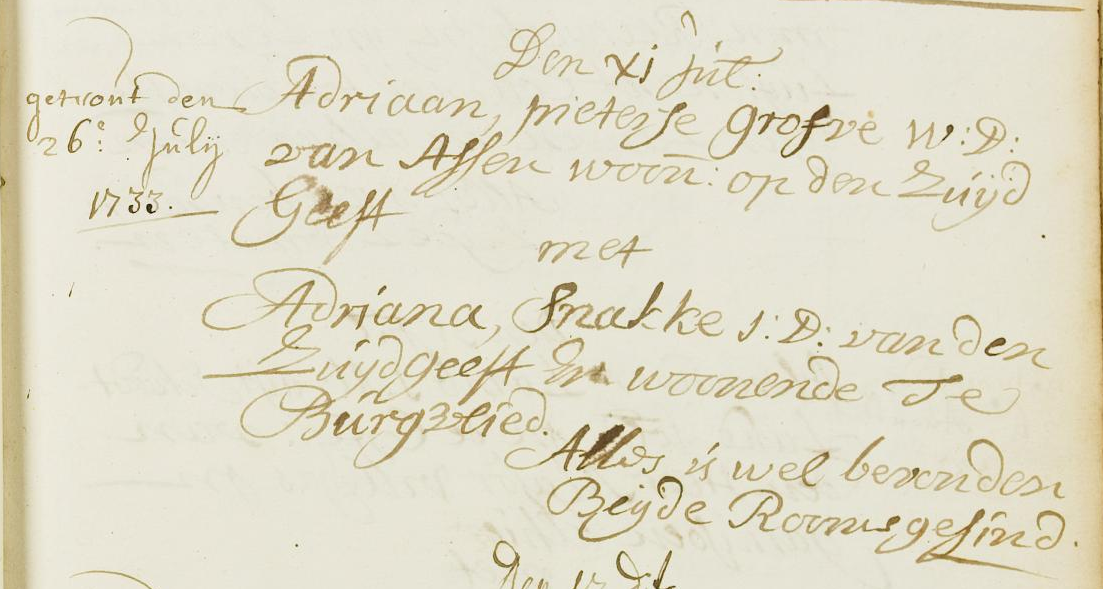 Den xi Jul:
getrout den
26e: Julij
1733.
Adriaan, pieterse Grofve W: D:
van Assen woon: op den Zuijd
Geest
met
Adriana, Snakke J: D: van den
Zuijdgeest En woonende Te
Burgvlied.
Alles is wel bevonden
Beijde Roomsgesind.
Den 17 dt